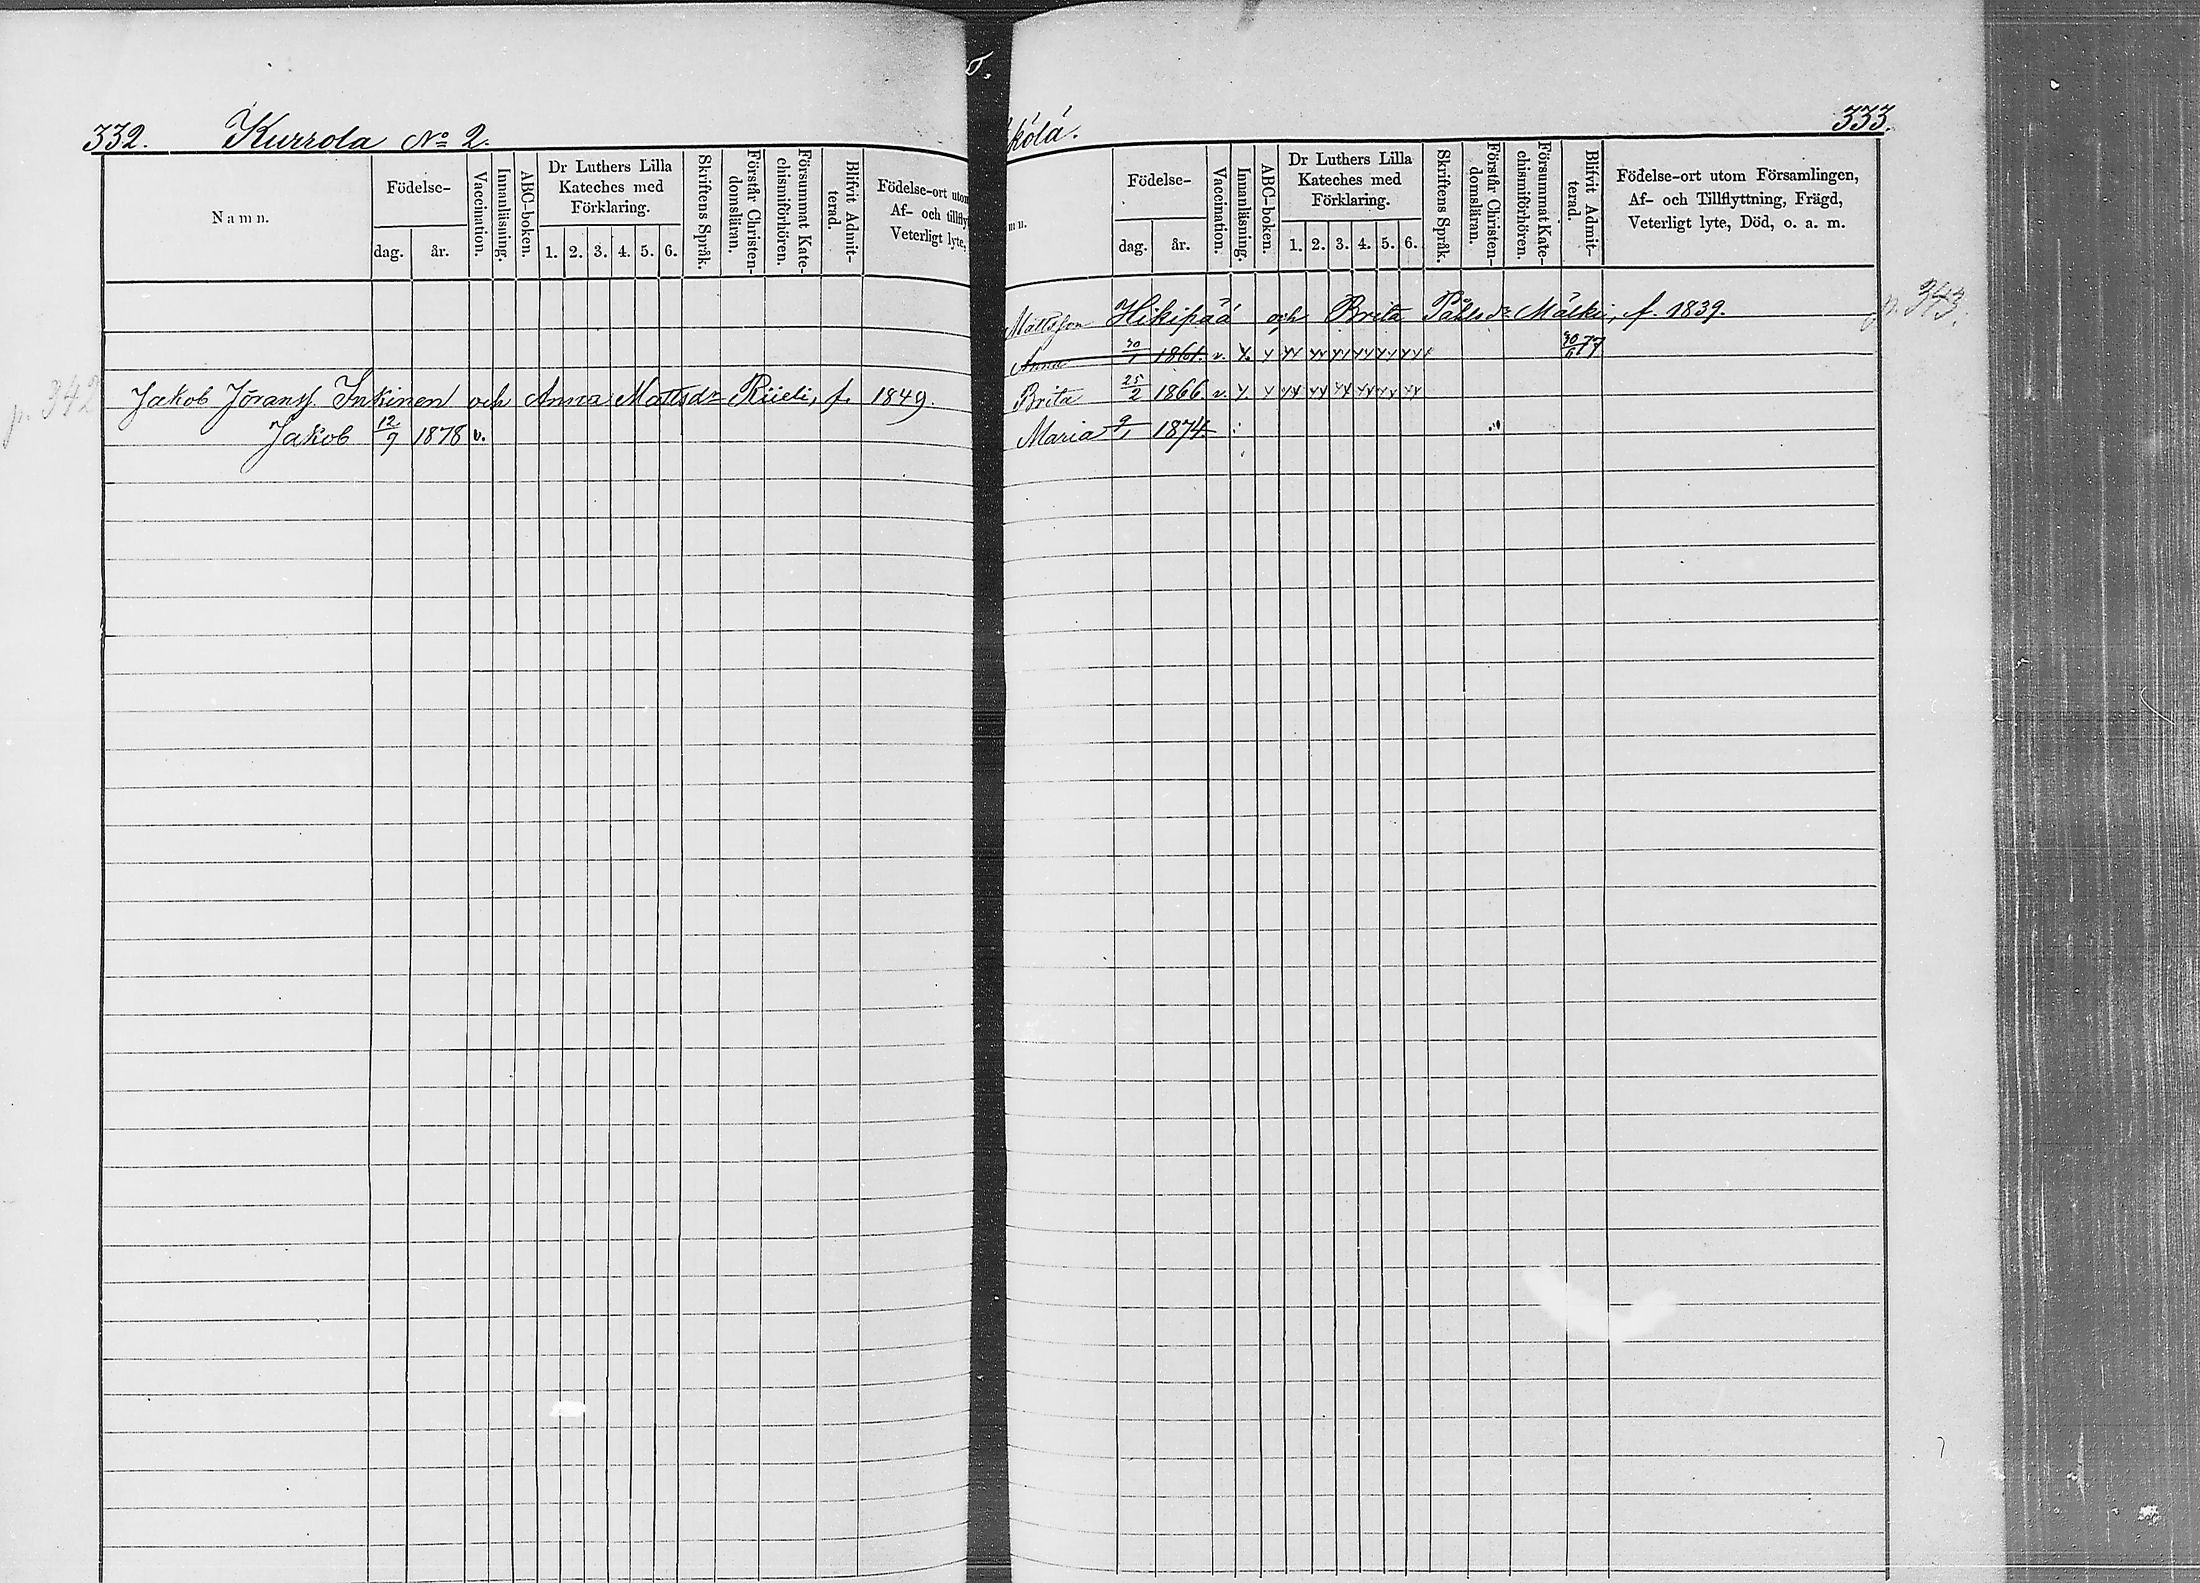 332. Kurrola No 2.
Namn.
Födelse-
dag. år.
Vaccination.
Innanläsning.
ABC-boken.
Dr Luthers Lilla
Kateches med
Förklaring.
1. 2. 3. 4. 5. 6.
Skriftens Språk.
Förstår Christen-
domsläran.
Försummat Kate-
chismiförhören.
Blifvit Admit-
terad.
Födelse-ort utom
Af- och tillfly
Veterligt lyte,
p. 342
Jakob Göranss. Inkinen och Anna Mattsdr Riieli, f. 1849.
Jakob 12/9 1878 v.
kölä. 333.
mn.
Födelse-
dag. år.
Vaccination.
Innanläsning.
ABC-boken.
Dr Luthers Lilla
Kateches med
Förklaring.
1. 2. 3. 4. 5. 6.
Skriftens Språk.
Förstår Christen-
domsläran.
Försummat Kate-
chismiförhören.
Blifvit Admit-
terad.
Födelse-ort utom Församlingen,
Af- och Tillflyttning, Frägd,
Veterligt lyte, Död, o. a. m.
Mattsson Hikipää och Brita Påhlsdr Mälki, f. 1839. p. 343.
Anna 1861. v.
Brita 25/2 1866 v.
Maria 9/1 1874.